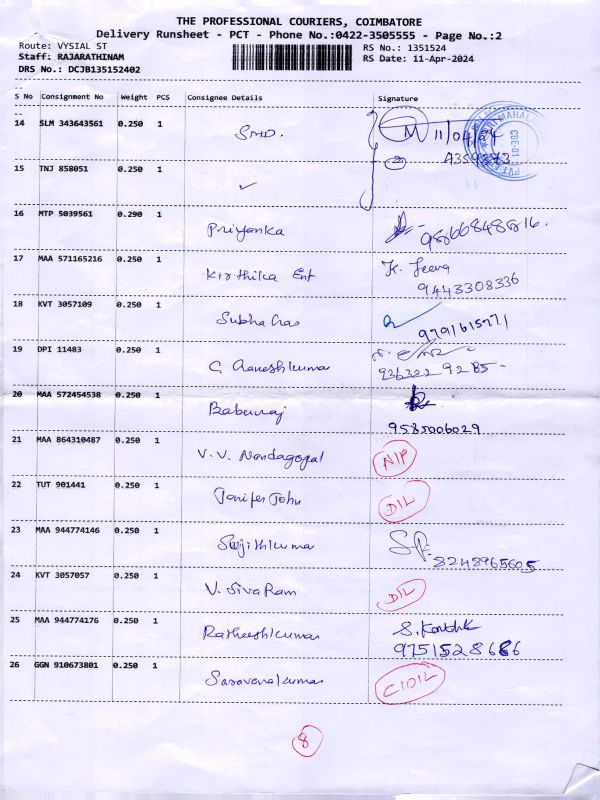 THE PROFESSIONAL COURIERS, COIMBATORE
Delivery Runsheet - PCT - Phone No.:0422-3505555 - Page No.:2
Route: VYSIAL ST
Staff: RAJARATHINAM
DRS No.: DCJB135152402
RS No.: 1351524
RS Date: 11-Apr-2024
S No Consignment No Weight PCS Consignee Details Signature
14 SLM 343643561 0.250 1 SMD. 11/04/24
15 TNJ 858051 0.250 1 ✓
16 MTP 5039561 0.290 1 Priyanka
17 MAA 571165216 0.250 1 Kirthika Ent K. Jeeva
9443308336
18 KVT 3057109 0.250 1 9791615771
19 DPI 11483 0.250 1 936302 9285-
20 MAA 572454538 0.250 1 Baburaj
9585006029
21 MAA 864310487 0.250 1 V.V. Nandagopal
22 TUT 901441 0.250 1 Jenifer John DIL
23 MAA 944774146 0.250 1 Sujithkumar
8248965605
24 KVT 3057057 0.250 1 V. Siva Ram DIL
25 MAA 944774176 0.250 1 Ratheeshkumar
26 GGN 910673801 0.250 1 Saravanakumar
8